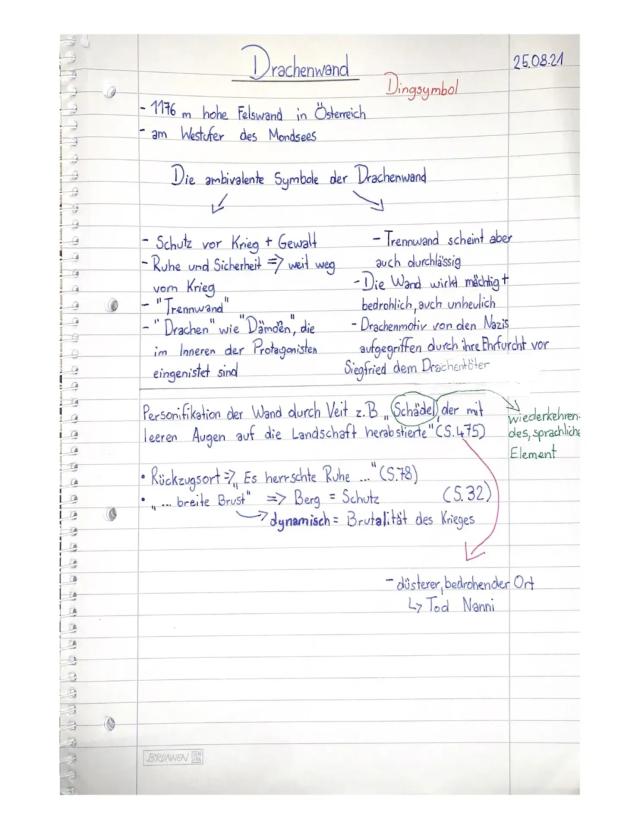 Drachenwand
25.08.21
Dingsymbol
- 1176 m hohe Felswand in Österreich
- am Westufer des Mondsees
Die ambivalente Symbole der Drachenwand
- Schutz vor Krieg + Gewalt
- Ruhe und Sicherheit => weit weg
vom Krieg
- "Trennwand"
- "Drachen" wie "Dämoen", die
im Inneren der Protagonisten
eingenistet sind
- Trennwand scheint aber
auch durchlässig
- Die Wand wirkt mächtig +
bedrohlich, auch unheulich
- Drachenmotiv von den Nazis
aufgegriffen durch ihre Ehrfurcht vor
Siegfried dem Drachentöter
Personifikation der Wand durch Veit z.B „Schädel, der mit
leeren Augen auf die Landschaft herabstierte" (S.475)
wiederkehren-
des, sprachliche
Element
• Rückzugsort => „Es herrschte Ruhe ..." (S.78)
• „... breite Brust" => Berg = Schutz (S.32)
→ dynamisch = Brutalität des Krieges
- düsterer, bedrohender Ort
↳ Tod Nanni
BRUNNEN